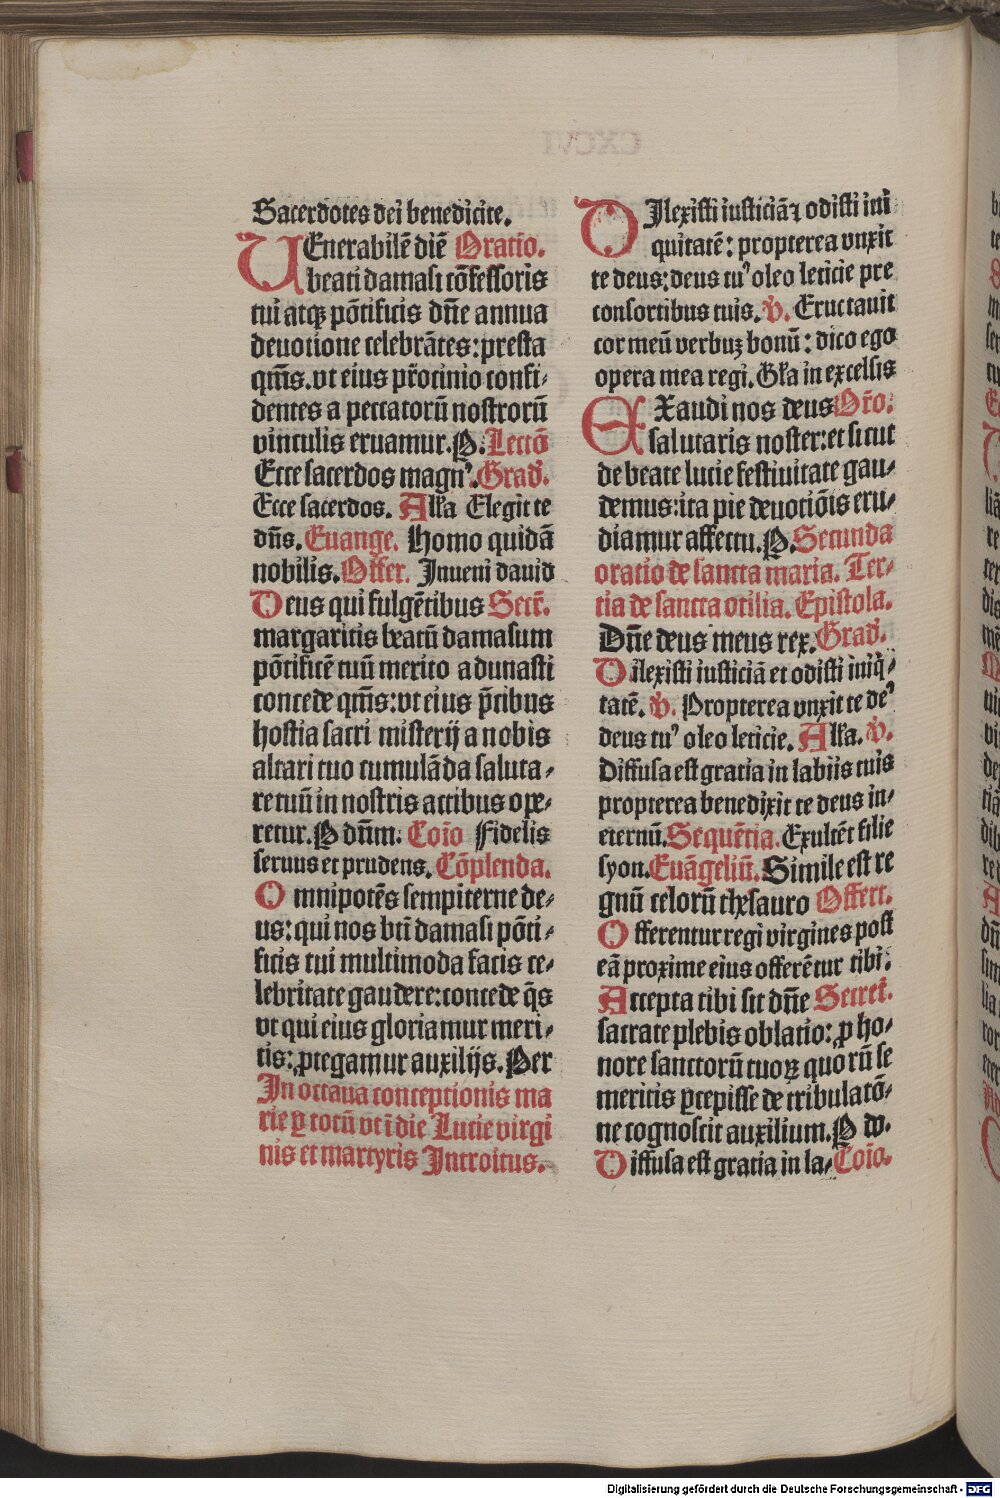 Sacerdotes dei benedicite.
UEnerabilē diē Oratio.
beati damasi cōfessoris
tui atqꝫ pōtificis dn̄e annua
deuotione celebrātes: presta
qm̄s. vt eius pr̄ocinio confi-
dentes a peccatorū nostrorū
vinculis eruamur. P. Lectō
Ecce sacerdos magnꝰ. Grad̄.
Ecce sacerdos. Alla Elegit te
dn̄s. Euange. Homo quidā
nobilis. Offer. Jnueni dauid
Deus qui fulgētibus Secr̄.
margaritis beatū damasum
pōtificē tuū merito adunasti
concede qm̄s: vt eius p̄cibus
hostia sacri misterij a nobis
altari tuo cumulāda saluta-
re tuū in nostris actibus ope-
retur. P dn̄m. Coīo Fidelis
seruus et prudens. Cōplenda.
Omnipotēs sempiterne de-
us: qui nos bt̄i damasi pōti-
ficis tui multimoda facis ce-
lebritate gaudere: concede q̄s
vt qui eius gloriamur meri-
tis: ꝓtegamur auxilijs. Per
Jn octaua conceptionis ma
rie ꝑ totū vt ī die Lucie virgi
nis et martyris Jntroitus.
DJlexisti iusticiā ⁊ odisti ini
quitatē: propterea vnxit
te deus: deus tuꝰ oleo leticie pre
consortibus tuis. v̄. Eructauit
cor meū verbuꝫ bonū: dico ego
opera mea regi. Gl̄a in excelsis
EXaudi nos deus Or̄o.
salutaris noster: et sicut
de beate lucie festiuitate gau-
demus: ita pie deuotiōis eru-
diamur affectu. P. Secunda
oratio de sancta maria. Ter-
tia de sancta otilia. Epistola.
Dn̄e deus meus rex. Grad̄.
Dilexisti iusticiā et odisti iniq̇-
tatē. v̄. Propterea vnxit te deꝰ
deus tuꝰ oleo leticie. Alla. v̄.
Diffusa est gratia in labiis tuis
propterea benedixit te deus in-
eternū. Sequētia. Exultēt filie
syon. Euāgeliū. Simile est re
gnū celorū thesauro Offert.
Offerentur regi virgines post
eā proxime eius offerētur tibi.
Accepta tibi sit dn̄e Secret̄.
sacrate plebis oblatio: ꝓ ho-
nore sanctorū tuoꝝ quorū se
meritis ꝑcepisse de tribulatō-
ne cognoscit auxilium. P do.
Diffusa est gratia in la- Coīo.
Digitalisierung gefördert durch die Deutsche Forschungsgemeinschaft - DFG